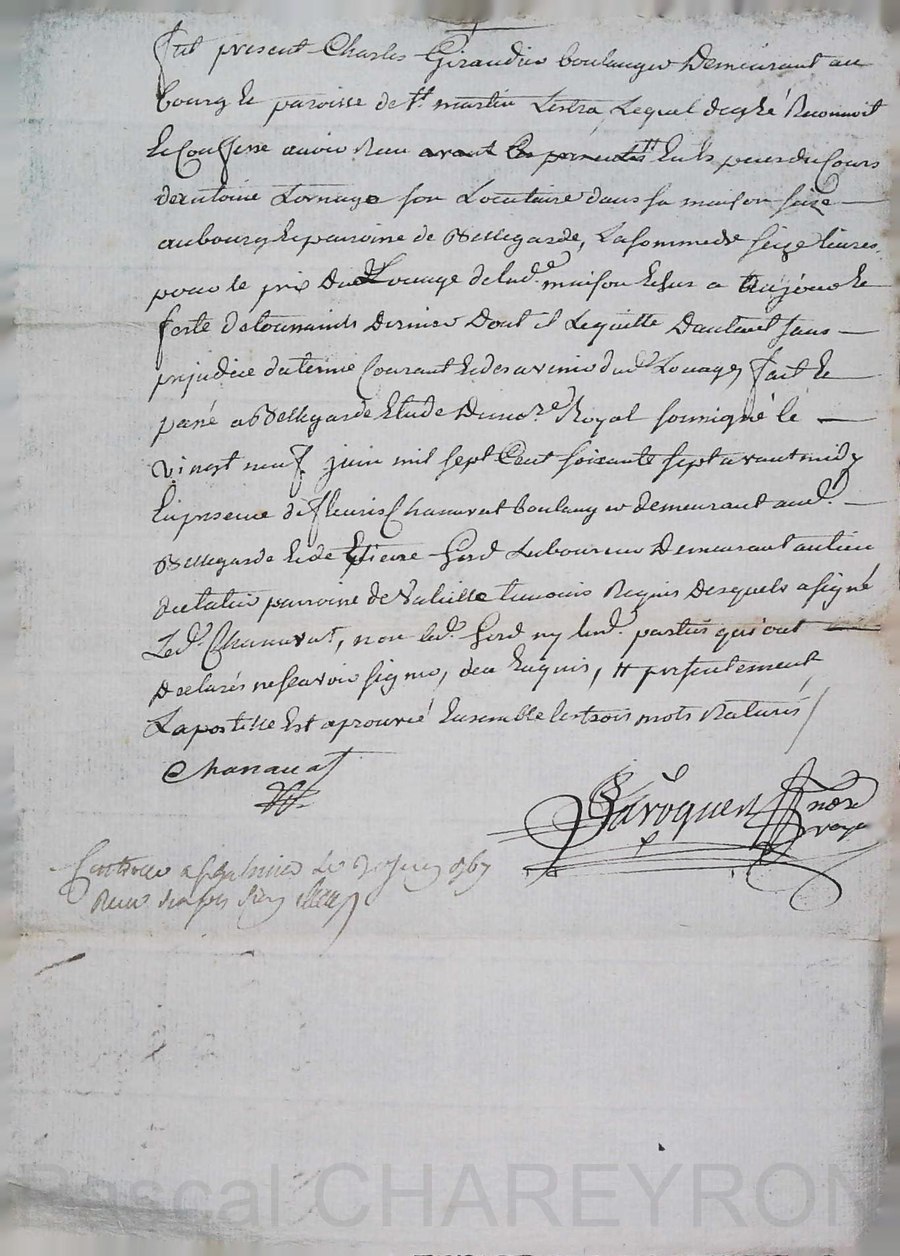 fut present Charles Giraudier boulanger demeurant au
bourg & paroisse de St. martin Lestra, Lequel de gré Reconnoit
& Confesse avoir Reçu avant les presentes # en & peu du Cours
d'antoine Lornage son Locataire dans sa maison size
au bourg & paroisse de Bellegarde, La somme de seize livres
pour le prix du Louage de lad.e maison echus a La jour &
feste de toussaints dernier dont il Le quitte d'autant sans
prejudice du terme Courant & des avenir dud. Louage, fait &
passé a Bellegarde Etude du no.re Royal soussigné le
vingt neuf juin mil sept Cent soixante sept avant midy
En presence de fleuris Chanavat boulanger demeurant aud.
Bellegarde & de Etienne Gord Laboureur Demeurant au lieu
paroisse de Valeille temoins Requis desquels a signé
Led. Chanavat, non led. Gord ny lesd. parties qui ont
declarés ne scavoir signer, de ce Enquis, # presentement
L'apostille Est aprouvéé Ensemble les trois mots Raturés
Chanavat
Baroquen nore
royal
Controllé a le 30 Juin 1767
Reçu six sols
Pascal CHAREYRON